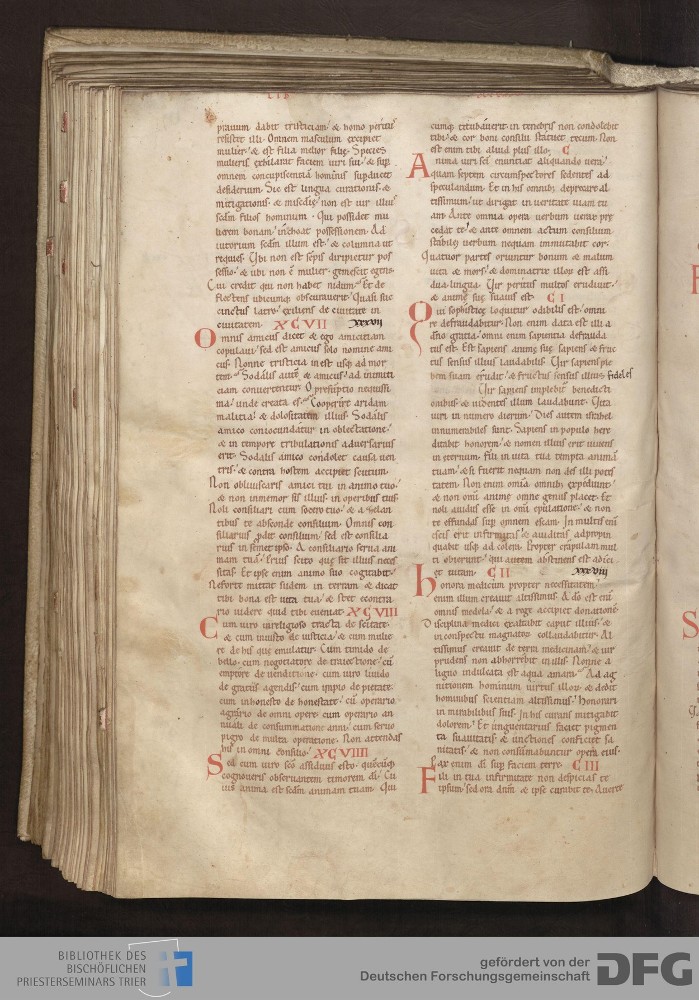 LIB
prauum dabit tristiciam & homo peritus
resistet illi. Omnem masculum excipiet
mulier. & est filia melior filię. Species
mulieris exhilarat faciem uiri sui. & sup
omnem concupiscentiam hominis supducet
desiderium. Sic est lingua curationis. &
mitigationis. & miscdię. non est uir illius
scdm filios hominum. Qui possidet mu
lierem bonam. inchoat possessionem. Ad
iutorium scdm illum est. & columna ut
requies. Ubi non est sepis diripietur pos
sessio. & ubi non ē mulier. gemescit egens.
Cui credit qui non habet nidum. Et de
flectens ubicumq; obscurauerit. Quasi suc
cinctus latro. exiliens de ciuitate in
ciuitatem. XCVII xxxvii
Omnis amicus dicet & ego amicitiam
copulaui. sed est amicus solo nomine ami
cus. Nonne tristicia inest usq; ad mor
tem. Sodalis aut & amicus. ad inimici
ciam conuertentur. O presuptio nequissi
ma. unde creata es. Cooperire aridam
malitia. & dolositatem illius. Sodalis
amico coniocundatur in oblectatione.
& in tempore tribulationis aduersarius
erit. Sodalis amico condolet causa uen
tris. & contra hostem accipiet scutum.
Non obliuiscaris amici tui in animo tuo.
& non inmemor sis illius in operibus tuis.
Noli consiliari cum socero tuo. & a zelan
tibus te absconde consilium. Omnis con
siliarius pdit consilium. sed est consilia
rius in semet ipso. A consiliario serua ani
mam tuā. Prius scito quę sit illius neces
sitas. Et ipse enim animo suo cogitabit.
Ne forte mittat sudem in terram. & dicat
tibi bona est uita tua. & stet econtra
rio uidere quid tibi eueniat. XCVIII
Cum uiro inreligioso tracta de scitate.
& cum iniusto de iusticia. & cum mulie
re de his quę emulatur. Cum timido de
bello. cum negotiatore de traiectione. cū
emptore de uenditione. cum uiro liuido
de gratiis agendis. cum impio de pietate.
cum inhonesto de honestate. cū operario
agrario de omni opere. cum operario an
nuali de consummatione anni. cum seruo
pigro de multa operatione. Non attendas
his in omni consilio. XCVIIII
Sed cum uiro sco assiduus esto. quecūq;
cognoueris obseruantem timorem di. Cu
ius anima est scdm animam tuam. Qui
cumq; titubauerit in tenebris non condolebit
tibi. & cor boni consilii statuet tecum. Non
est enim tibi aliud plus illo. C
Anima uiri sci enuntiat aliquando uera.
quam septem circumspectores sedentes ad
speculandum. Et in his omnibus deprecare al
tissimum. ut dirigat in ueritate uiam tu
am. Ante omnia opera uerbum uerax pre
cedat te. & ante omnem actum consilium
stabile. uerbum nequam inmutabit cor.
Quatuor partes oriuntur bonum & malum
uita & mors. & dominatrix illorum est assi
dua lingua. Uir peritus multos erudiuit.
& animę suę suauis est. CI
Qui sophistice loquitur odibilis est. omni
re defraudabitur. Non enim data est illi a
dno gratia. omni enim sapientia defrauda
tus est. Est sapiens animę suę sapiens. & fruc
tus sensus illius laudabilis. Uir sapiens ple
bem suam erudit. & fructus sensus illius fideles
Uir sapiens implebitur benedicti
onibus. & uidentes illum laudabunt. Uita
uiri in numero dierum. Dies autem israhel
innumerabiles sunt. Sapiens in populo here
ditabit honorem. & nomen illius erit uiuens
in eternum. Fili in uita tua tempta animā
tuam. & si fuerit nequam non des illi potes
tatem. Non enim omnia omnibus expediunt.
& non omni animę omne genus placet. Et
noli auidus esse in omni epulatione. & non
te effundas sup omnem escam. In multis eni
escis erit infirmitas. & auiditas adpropin
quabit usq; ad colera. Propter crapulam mul
ti obierunt. qui autem abstinens est adici
et uitam. CII xxxviii
Honora medicum propter necessitatem.
enim illum creauit altissimus. A do est eni
omnis medela. & a rege accipiet donationē
Disciplina medici exaltabit caput illius. &
in conspectu magnatorum collaudabitur. Al
tissimus creauit de terra medicinam. & uir
prudens non abhorrebit in illis. Nonne a
ligno indulcata est aqua amara. Ad ag
nitionem hominum uirtus illorum. & dedit
hominibus scientiam altissimus. Honorari
in mirabilibus suis. In his curans mitigabit
dolorem. Et inguentarius faciet pigmen
ta suauitatis & unctiones conficiet sa
nitatis. & non consumabuntur opera eius.
Pax enim di sup faciem terre. CIII
Fili in tua infirmitate non despicias te
ipsum. sed ora dnm. & ipse curabit te. Auerte
BIBLIOTHEK DES
BISCHÖFLICHEN
PRIESTERSEMINARS TRIER
gefördert von der
Deutschen Forschungsgemeinschaft
DFG